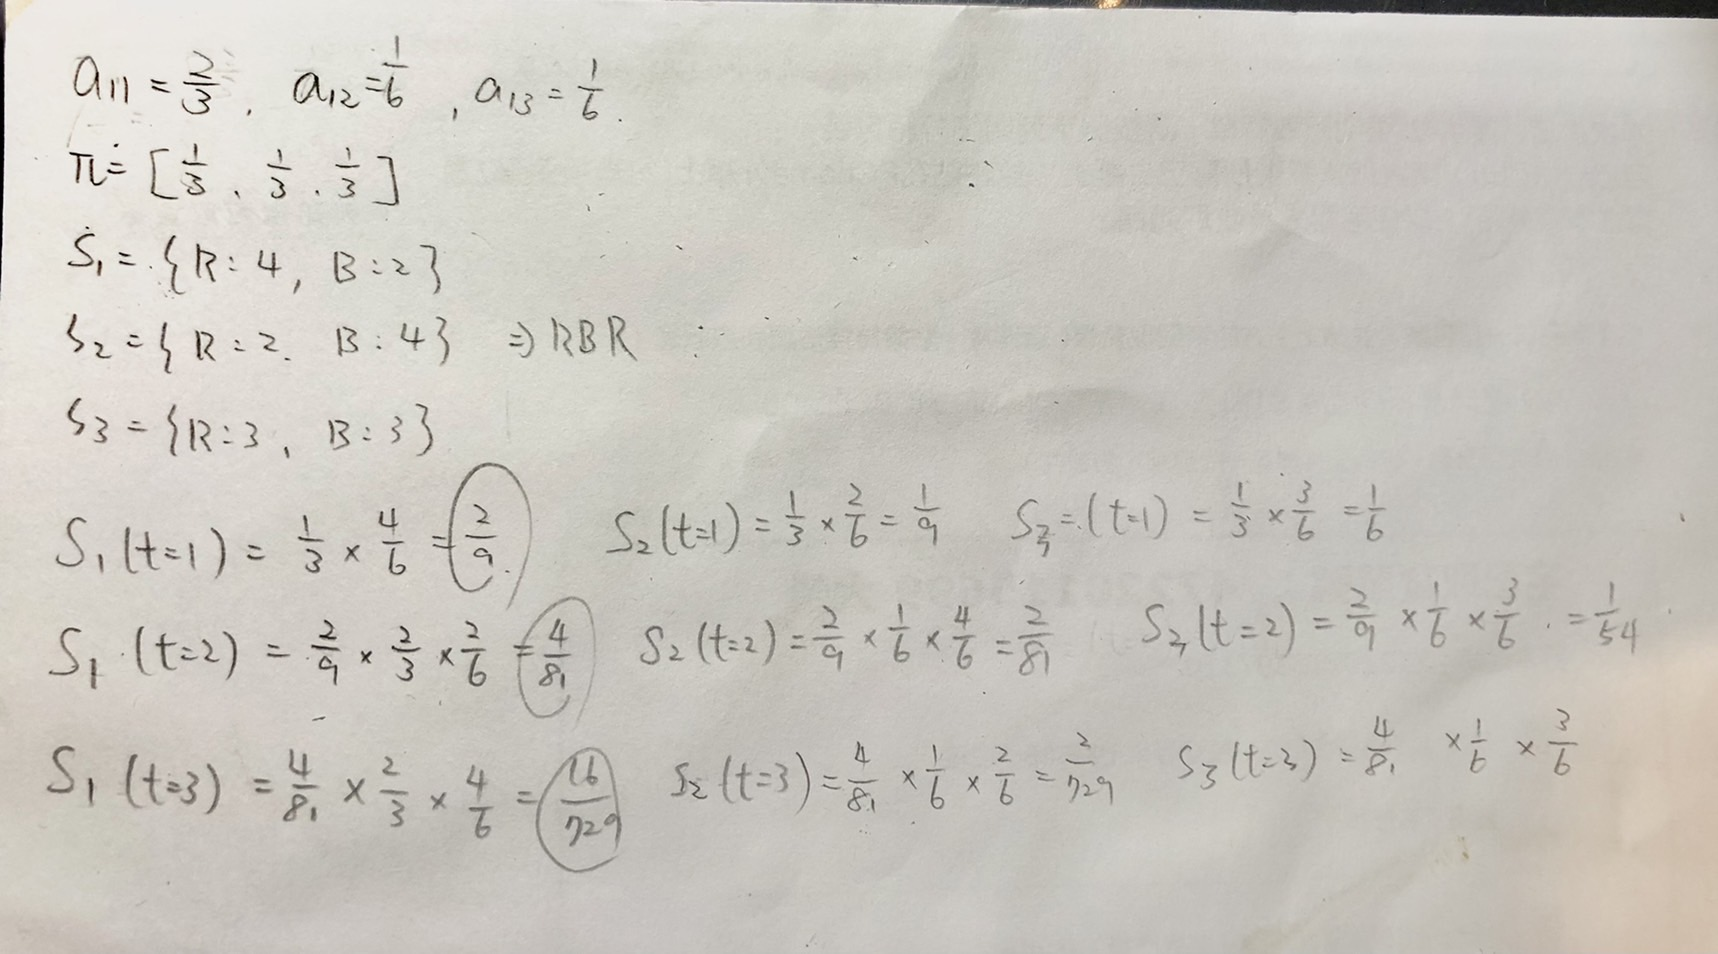 a11 = 2/3, a12 = 1/6, a13 = 1/6.
π = [1/3, 1/3, 1/3]
S1 = {R: 4, B: 2}
S2 = {R: 2, B: 4} ⇒ RBR
S3 = {R: 3, B: 3}
S1 (t=1) = 1/3 × 4/6 = 2/9. S2 (t=1) = 1/3 × 2/6 = 1/9 S3 = (t=1) = 1/3 × 3/6 = 1/6
S1 (t=2) = 2/9 × 2/3 × 2/6 = 4/81 S2 (t=2) = 2/9 × 1/6 × 4/6 = 2/81 S3 (t=2) = 2/9 × 1/6 × 3/6 = 1/54
S1 (t=3) = 4/81 × 2/3 × 4/6 = 16/729 S2 (t=3) = 4/81 × 1/6 × 2/6 = 2/729 S3 (t=3) = 4/81 × 1/6 × 3/6